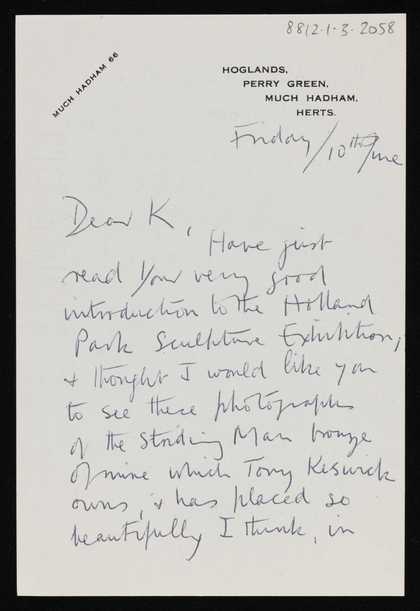 8812·1·3·2058
MUCH HADHAM 66
HOGLANDS,
PERRY GREEN,
MUCH HADHAM,
HERTS.
Friday / 10th June
Dear K,
Have just
read your very good
introduction to the Holland
Park Sculpture Exhibition,
& thought I would like you
to see these photographs
of the Striding Man bronze
of mine which Tony Keswick
owns, & has placed so
beautifully I think, in